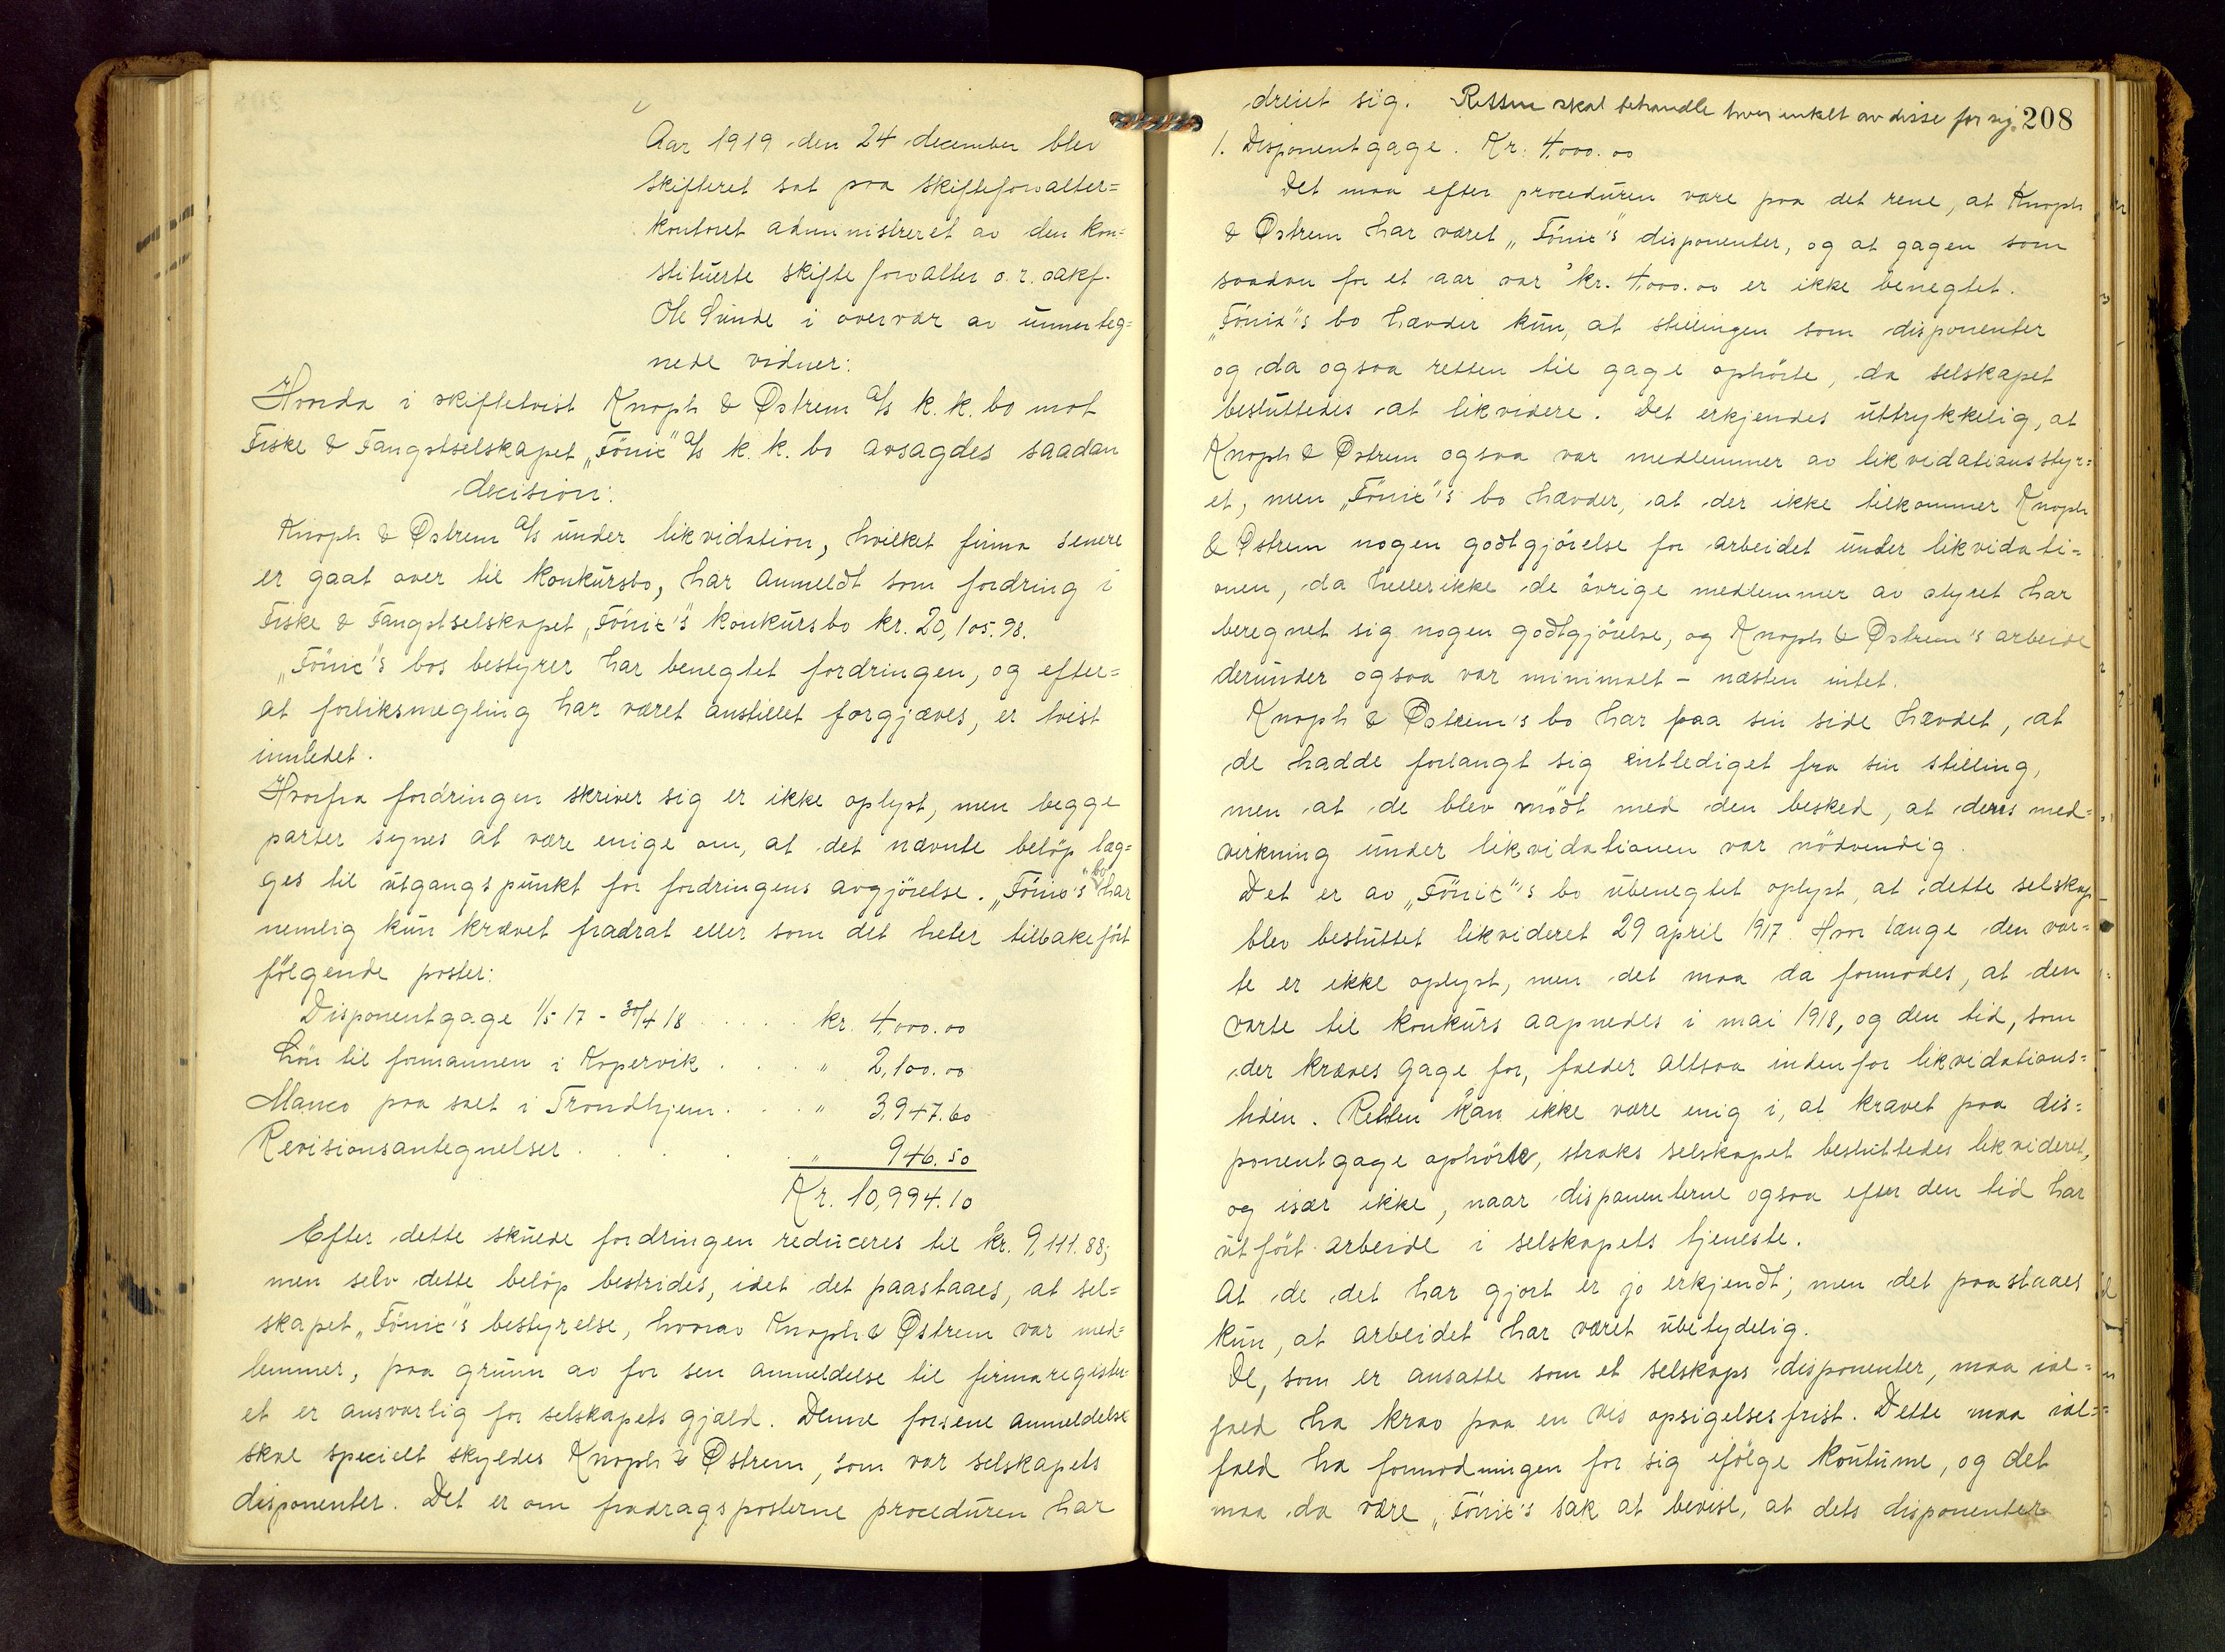 Aar 1919 den 24 december blev
skifteret sat paa skifteforvalter=
kontoret administreret av den kon=
stituerte skifteforvalter o.r.sakf.
Ole Sunde i overvær av unnerteg=
nede vidner:
Hvorda i skiftetvist Knoph & Østrem a/s k.k. bo mot
Fiske & Fangstselskapet „Fönix" a/s k.k. bo avsagdes saadan
decision:
Knoph & Østrem a/s under likvidation, hvilket firma senere
er gaat over til konkursbo, har anmeldt som fordring i
Fiske & Fangstselskapet „Fönix"s konkursbo kr. 20,105.98.
„Fönix"s bos bestyrer har benegtet fordringen, og efter=
at forliksmegling har været anstillet forgjæves, er tvist
innledet.
Hvorfra fordringen skriver sig er ikke oplyst, men begge
parter synes at være enige om, at det nævnte belöp læg=
ges til utgangspunkt for fordringens avgjörelse. „Fönix"s bo har
nemlig kun krævet fradrat eller som det heter tilbakefört
fölgende poster:
Disponentgage 1/5 17 - 30/4 18 . . . . kr. 4,000.00
Lön til formannen i Kopervik . . . . " 2,100.00
Manco paa salt i Trondhjem . . . " 3,947.60
Revisionsantegnelser . . . . " 946.50
Kr. 10,994.10
Efter dette skulde fordringen reduceres til kr. 9,111.88;
men selv dette belöp bestrides, idet det paastaaes, at sel=
skapet „Fönix"s bestyrelse, hvorav Knoph & Østrem var med=
lemmer, paa grunn av for sen anmeldelse til firmaregister=
et er ansvarlig for selskapets gjæld. Denne forsene anmeldelse
skal specielt skyldes Knoph & Østrem, som var selskapets
disponenter. Det er om fradragsposterne proceduren har
dreiet sig. Retten skal behandle hver enkelt av disse for sig. 208
1. Disponentgage. Kr. 4,000.00
Det maa efter proceduren være paa det rene, at Knoph
& Østrem har været „Fönix"s disponenter, og at gagen som
saadan for et aar var kr. 4,000.00 er ikke benegtet.
„Fönix"s bo hævder kun, at stillingen som disponenter
og da ogsaa retten til gage ophörte, da selskapet
besluttedes at likvidere. Det erkjendes uttrykkelig, at
Knoph & Østrem ogsaa var medlemmer av likvidationsstyr=
et, men „Fönix"s bo hævder, at der ikke tilkommer Knoph
& Østrem nogen godtgjörelse for arbeidet under likvidati=
onen, da hellerikke de övrige medlemmer av styret har
beregnet sig nogen godtgjörelse, og Knoph & Østrem's arbeide
derunder ogsaa var minimalt - næsten intet.
Knoph & Østrem's bo har paa sin side hævdet, at
de hadde forlangt sig entlediget fra sin stilling,
men at de blev mödt med den besked, at deres med=
virkning under likvidationen var nödvendig.
Det er av „Fönix"s bo ubenegtet oplyst, at dette selskap
blev besluttet likvideret 29 april 1917. Hvor længe den var=
te er ikke oplyst, men det maa da formodes, at den
varte til konkurs aapnedes i mai 1918, og den tid, som
der kræves gage for, falder altsaa indenfor likvidations=
tiden. Retten kan ikke være enig i, at kravet paa dis=
ponentgage ophörte, straks selskapet besluttedes likvideret,
og især ikke, naar disponenterne ogsaa efter den tid har
utfört arbeide i selskapets tjeneste.
At de det har gjort er jo erkjendt; men det paastaaes
kun, at arbeidet har været ubetydelig.
De, som er ansatte som et selskaps disponenter, maa ial=
fald ha krav paa en vis opsigelsesfrist. Dette maa ial=
fald ha formodningen for sig ifölge koutume, og det
maa da være „Fönix"s sak at bevise, at dets disponenter